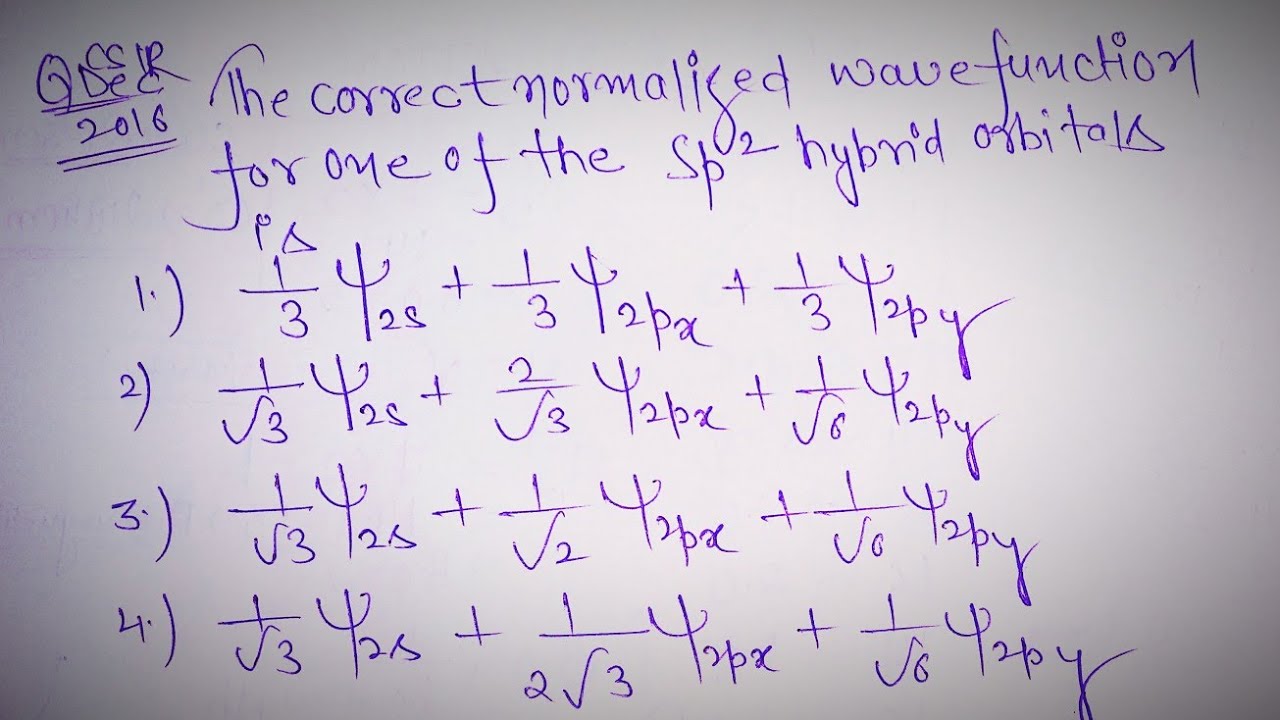 Q CSIR Dec 2016
The correct normalised wavefunction
for one of the sp² hybrid orbitals
is
1.) 1/3 Ψ2s + 1/3 Ψ2px + 1/3 Ψ2py
2) 1/√3 Ψ2s + 2/√3 Ψ2px + 1/√6 Ψ2py
3.) 1/√3 Ψ2s + 1/√2 Ψ2px + 1/√6 Ψ2py
4.) 1/√3 Ψ2s + 1/2√3 Ψ2px + 1/√6 Ψ2py